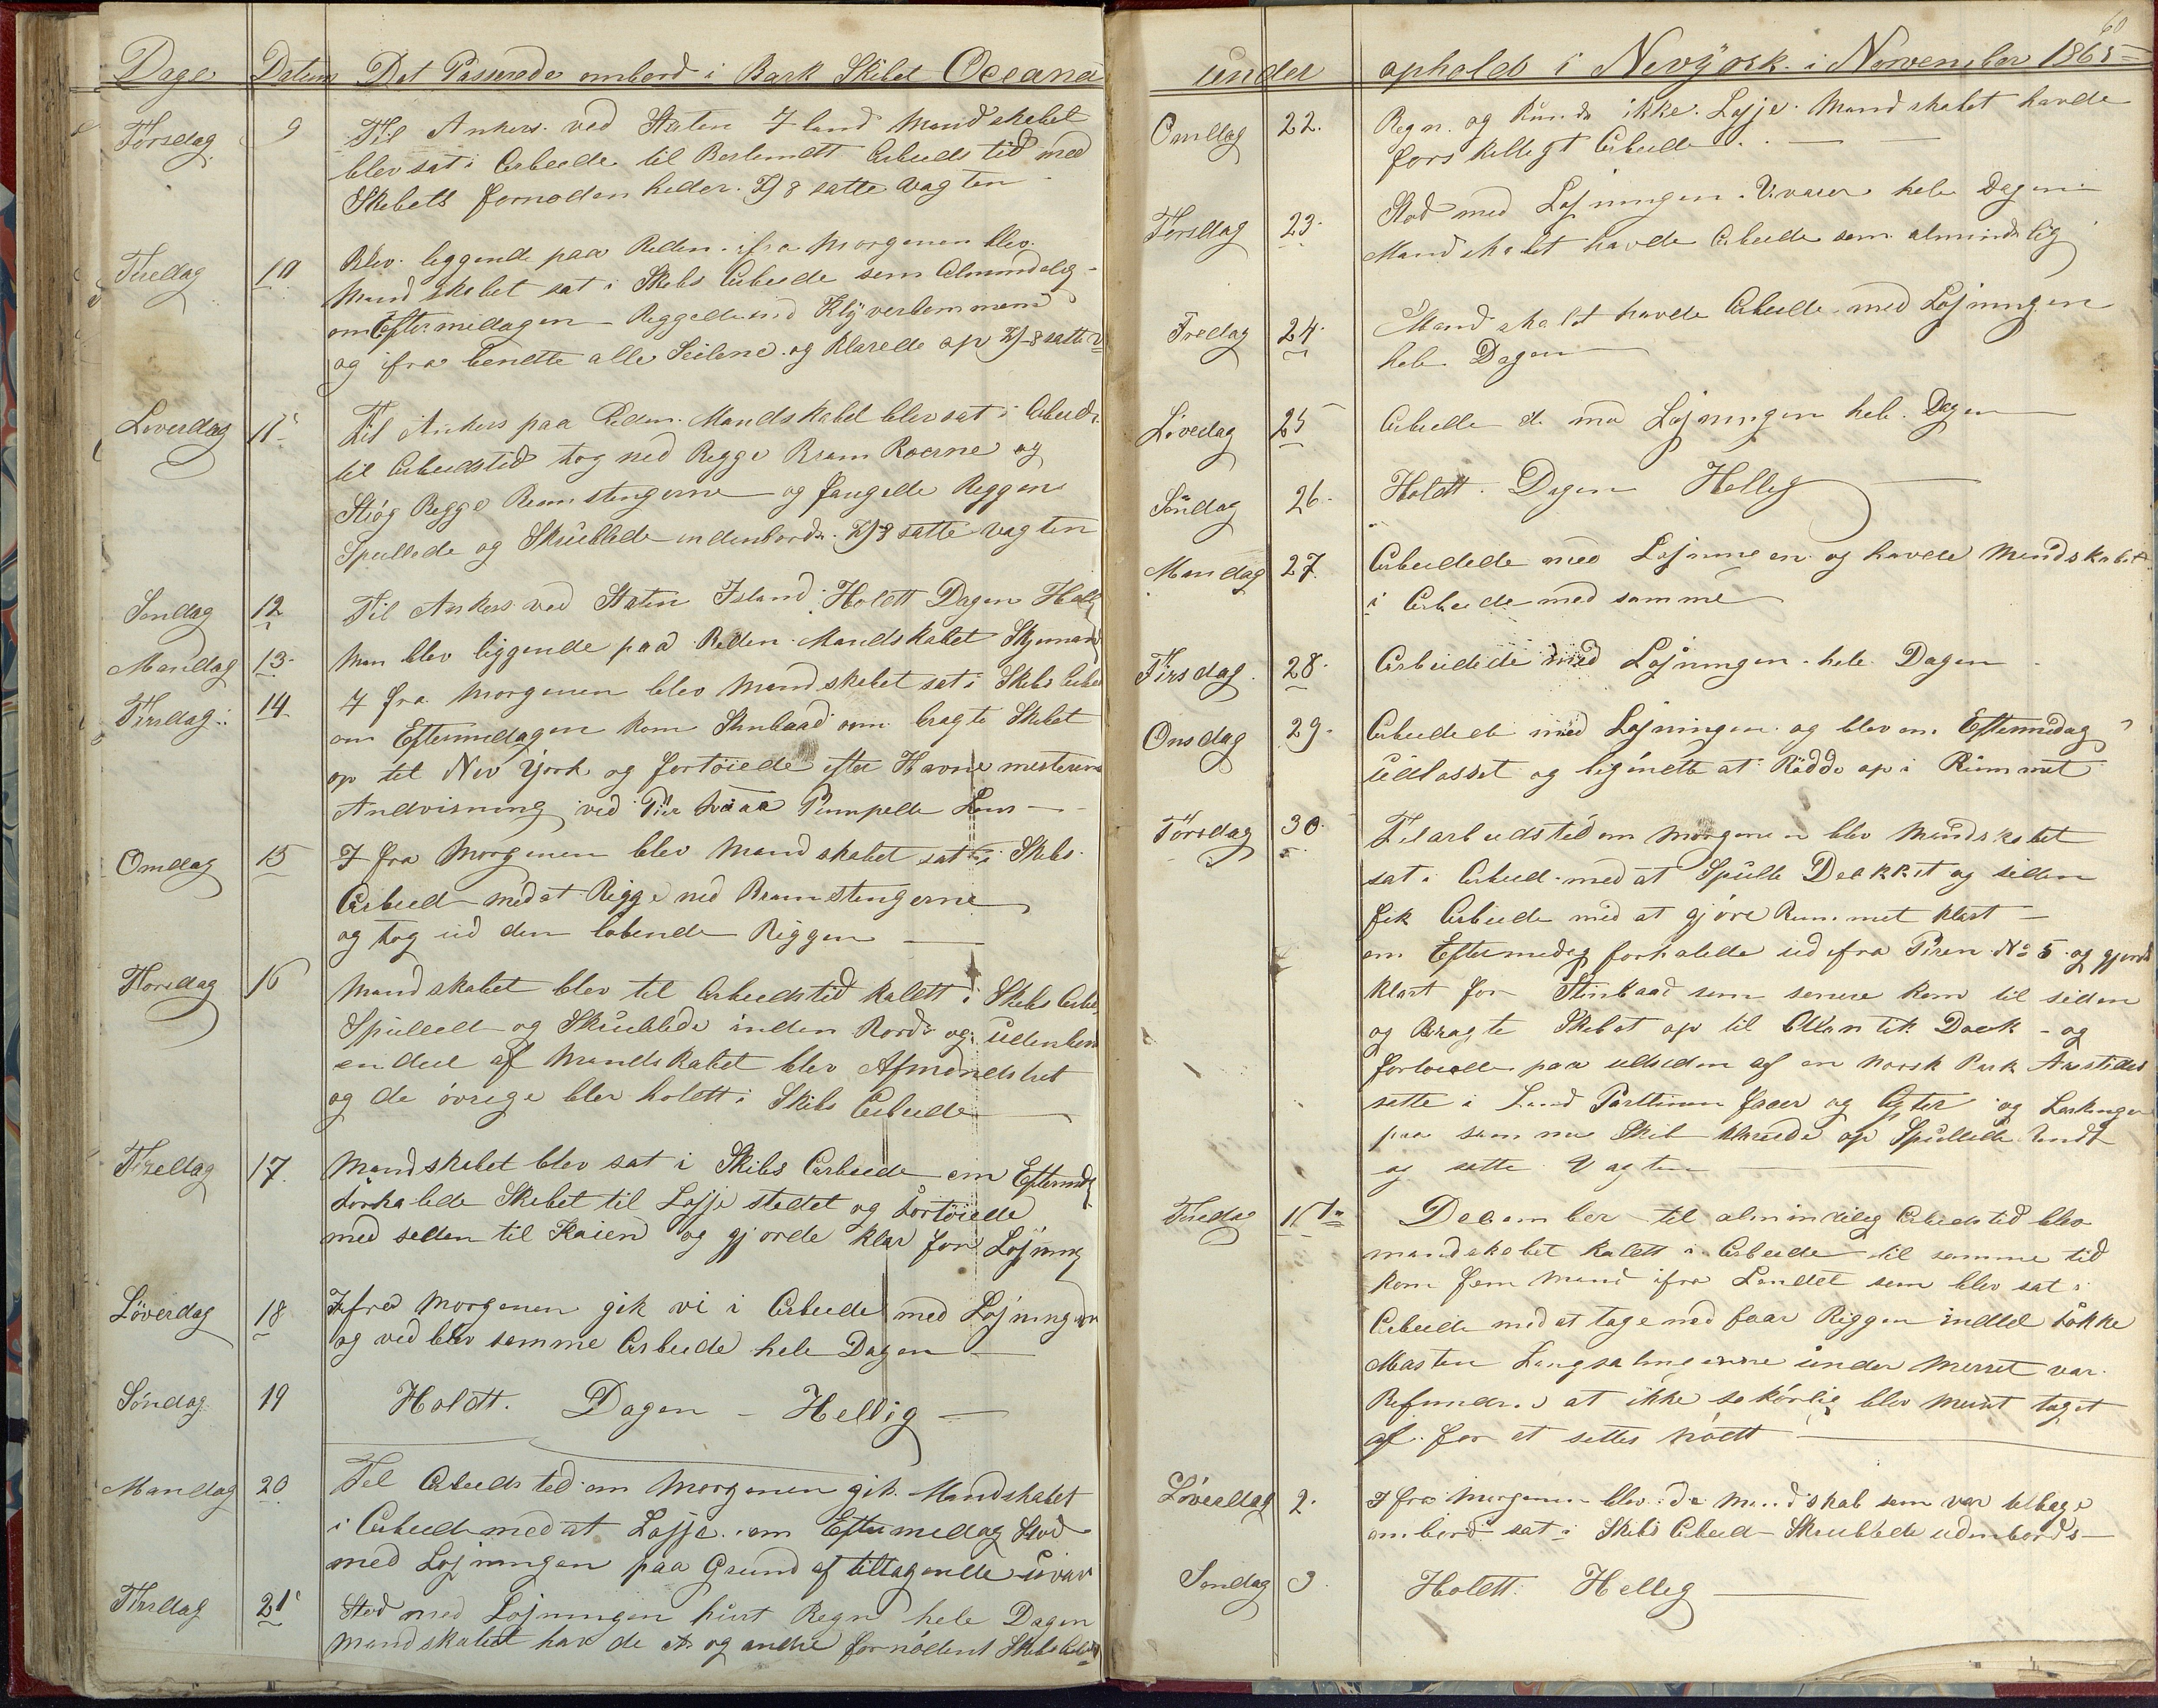 Dage Datum Det Passerede ombord i Bark Skibet Oceana
Torsdag 9 Til Ankers ved Staten Iland Mandskabet
blev sat i Arbeide til Bestemdtt Arbeids tid med
Skibets Fornødenheder. Kl 8 satte Vagten
Fredag 10 Blev liggende paa Reden ifra Morgenen blev
Mandskabet sat i Skibs Arbeide som Almindelig
om Eftermidagen Riggede ind Klyverbommene
og ifra bendte alle Seilene og Klarede op Kl 8 satte V
Løverdag 11 Til Ankers paa Reden Mandskabet blev sat i Arbeide
til Arbeidstid tog ned Rigge Bram Raaerne og
Strøg Bramstengerne og fangede Riggen
Spullede og Skrubbede indenbords. Kl 8 satte Vagten
Søndag 12 Til Ankers ved Staten Island Holdtt Dagen Hellig
Mandag 13 Man blev liggende paa Reden Mandskabet
Tirsdag 14 I fra Morgenen blev Mandskabet sat i Skibs Arbeid
om Eftermidagen kom Stimbaad som bragte Skibet
op til Nev York og fortøiede efter Havnemesterens
Andvisning ved Pier
Onsdag 15 I fra Morgenen blev Mandskabet sat i Skibs
Arbeid med at Rigge ned Bramstengerne
og tog ud den løbende Riggen
Torsdag 16 Mandskabet blev til Arbeidstid kaldtt i Skibs Arbeid
Spulledt og Skrubbede inden Bords og udenbor
en deel af Mandskabet blev Afmønsteret
og de øvrige blev holdtt i Skibs Arbeide
Fredag 17 Mandskabet blev sat i Skibs Arbeide om Eftermidg
Forhalede Skibet til Losje stedet og Fortøiede
med siden til Kaien og gjorde klar for Losjning
Løverdag 18 Ifra Morgenen gik vi i Arbeide med Losjningen
og ved blev samme Arbeide hele Dagen
Søndag 19 Holdtt. Dagen - Hellig
Mandag 20 Til Arbeids tid om Morgenen gik Mandskabet
i Arbeid med at Losje om Eftermidag Stod
med Losjningen paa Grund af tiltagende Uvær
Tirsdag 21 Stod med Losjningen Regn hele Dagen
Mandskabet havde og andre fornødent Skibs Arbeid
60
under ophold i Nevyork i November 1865
Onsdag 22. Regn og Kunde ikke Losje Mandskabet havde
forskelligt Arbeide
Torsdag 23. Stod med Losjningen Uvaer hele Dagen
Mandskabet havde Arbeide som almindelig
Fredag 24. Mandskabet havde Arbeide med Losjningen
hele Dagen
Løverdag 25 Arbeidede med Losjningen hele Dagen
Søndag 26. Holdtt. Dagen Hellig
Mandag 27. Arbeidede med Losjningen og havde Mandskabet
i Arbeide med samme
Tirsdag 28. Arbeidede med Losjningen hele Dagen
Onsdag 29. Arbeidede med Losjningen og blev om Eftermidag
Udlosset og begyndte at Rødde op i Rummet
Torsdag 30. Til arbeidstid om Morgenen blev Mandskabet
sat i Arbeid med at Spulle Dekket og siden
fik Arbeide med at gjøre Rummet klart
om Eftermidg forhalede ud ifra Piren No 5 og gjorde
klart for Stimbaad som senere kom til siden
og Bragte Skibet op til Atlantik Dock - og
fortøiede paa udsiden af en Norsk Bark Aristides
sette i Land Forttinner foer og Agter og
paa samme Skib klarede op Spullede Rundt
og satte Vagten
Fredag 1 December til almindelig Arbeidstid blev
mandskabet kaldtt i Arbeide til samme tid
kom fem Mand ifra Landet som blev sat i
Arbeide med at tage ned foor Riggen indtil Fokke
Masten Langsalingerne under Merset var
Befunden at ikke blev Merset taget
af for at settes nödtt
Løverdag 2. Ifra Morgenen blev de Mandskab som var tilbage
ombord sat i Skibs Arbeid Skrubbede udenbords
Søndag 3. Holdtt Hellig